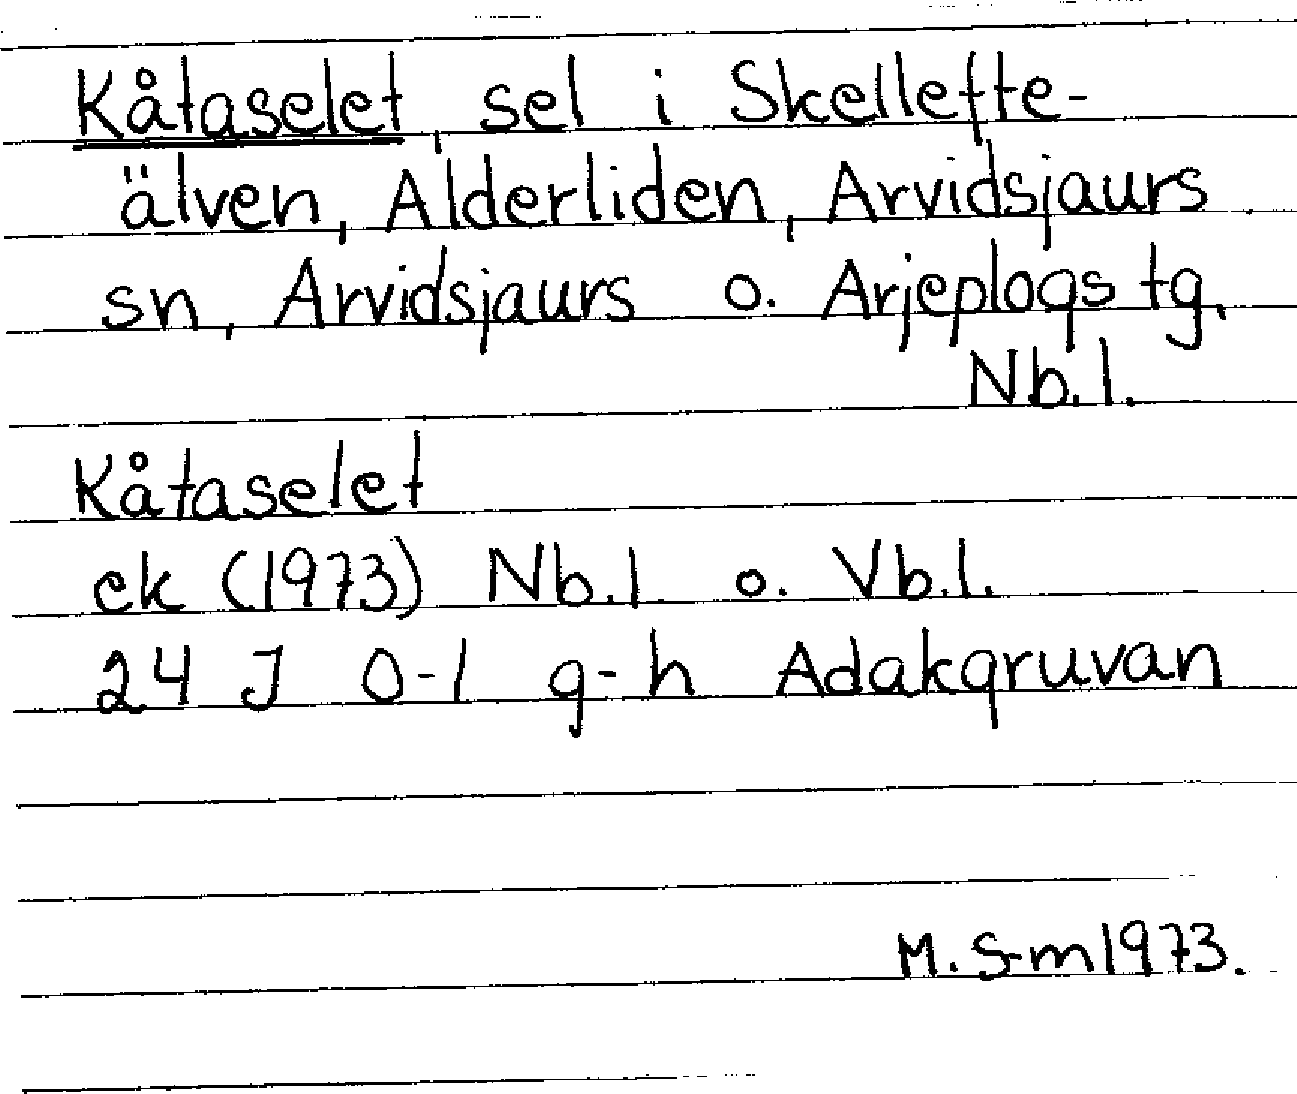 Kåtaselet, sel i Skellefte-
älven, Alderliden, Arvidsjaurs
sn, Arvidsjaurs o. Arjeplogs tg,
Nb.l.
Kåtaselet
ek (1973) Nb.l o. Vb.l.
24 J 0-1 g-h Adakgruvan
M. S-m 1973.